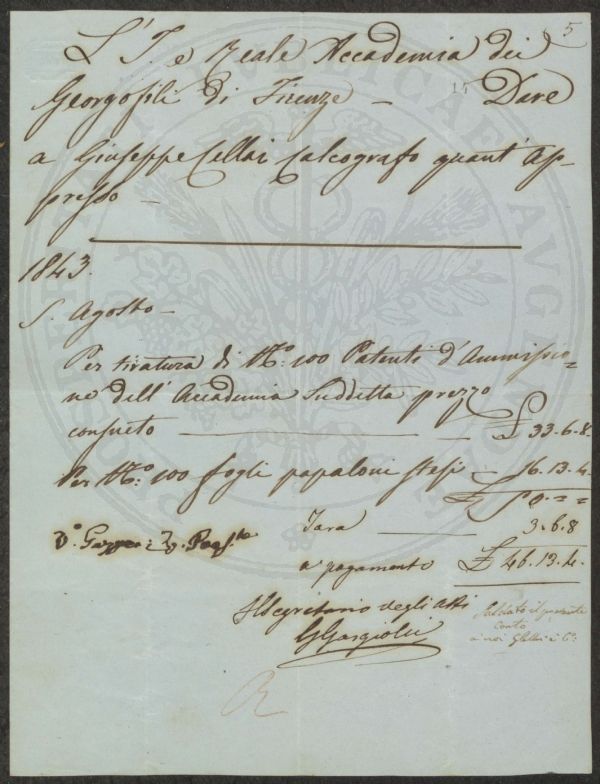 5
L'I. e Reale Accademia dei
Georgofili di Firenze — 14 Dare
a Giuseppe Cellai Calcografo quant'ap-
presso —
1843.
5. Agosto —
Per tiratura di No. 100 Patenti d'Ammissio=
ne dell'Accademia suddetta prezzo
consueto — £ 33.6.8.
Per No. 100 fogli papaloni stesi — 16.13.4.
£ 50. = =
Tara — 3.6.8
a pagamento £ 46.13.4.
Il Segretario degli Atti
Saldato il presente
Conto
GGargiolli
R
PROSPERITATI PUBLICAE AUGENDAE